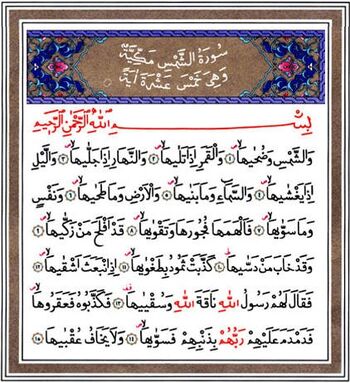 سُورَةُ الشَّمْسِ مَكِّيَّةٌ
وَهِيَ خَمْسَ عَشْرَةَ اٰيَةً
بِسْــــمِ اللّٰهِ الرَّحْمٰنِ الرَّحِيمِ
وَالشَّمْسِ وَضُحٰيهَاۙ ١ وَالْقَمَرِ اِذَا تَلٰيهَاۙ ٢ وَالنَّهَارِ اِذَا جَلّٰيهَاۙ ٣ وَالَّيْلِ
اِذَا يَغْشٰيهَاۙ ٤ وَالسَّمَٓاءِ وَمَا بَنٰيهَاۙ ٥ وَالْاَرْضِ وَمَا طَحٰيهَاۙ ٦ وَنَفْسٍ
وَمَا سَوّٰيهَاۙ ٧ فَاَلْهَمَهَا فُجُورَهَا وَتَقْوٰيهَاۙ ٨ قَدْ اَفْلَحَ مَنْ زَكّٰيهَاۙ ٩
وَقَدْ خَابَ مَنْ دَسّٰيهَاۜ ١٠ كَذَّبَتْ ثَمُودُ بِطَغْوٰيهَاۙ ١١ اِذِ انْبَعَثَ اَشْقٰيهَاۙ ١٢
فَقَالَ لَهُمْ رَسُولُ اللّٰهِ نَاقَةَ اللّٰهِ وَسُقْيٰيهَاۜ ١٣ فَكَذَّبُوهُ فَعَقَرُوهَاۙ
فَدَمْدَمَ عَلَيْهِمْ رَبُّهُمْ بِذَنْبِهِمْ فَسَوّٰيهَاۙ ١٤ وَلَا يَخَافُ عُقْبٰيهَا ١٥